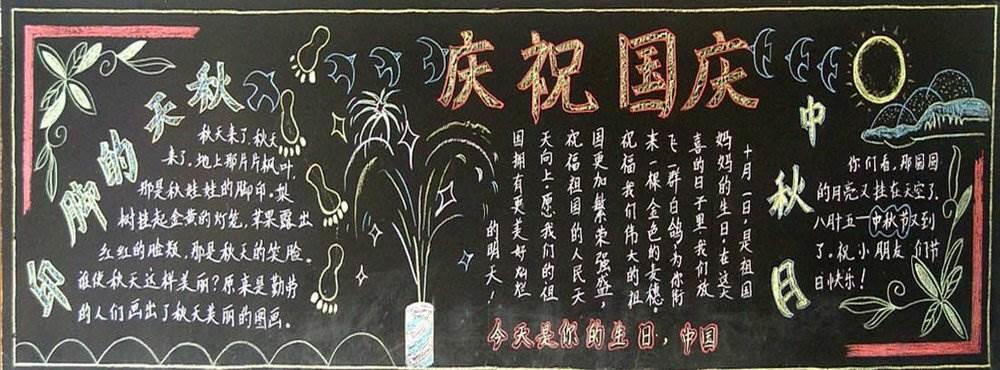 庆祝国庆
秋天的脚印
秋天来了,秋天
来了,地上那片片枫叶,
那是秋娃娃的脚印。梨
树挂起金黄的灯笼,苹果露出
红红的脸颊,那是秋天的笑脸。
谁使秋天这样美丽?原来是勤劳
的人们画出了秋天美丽的图画。
十月一日,是祖国
妈妈的生日,在这天
喜的日子里,我们放
飞一群白鸽,为你衔
来一棵金色的麦穗。
祝福我们伟大的祖
国更加繁荣强盛,
祝福祖国的人民天
天向上,愿我们的但
国拥有更美好灿烂
的明天!
今天是你的生日,中国
中秋月
你们看,那圆圆
的月亮又挂在天空了,
八月十五—中秋节又到
了。祝小朋友们节
日快乐!